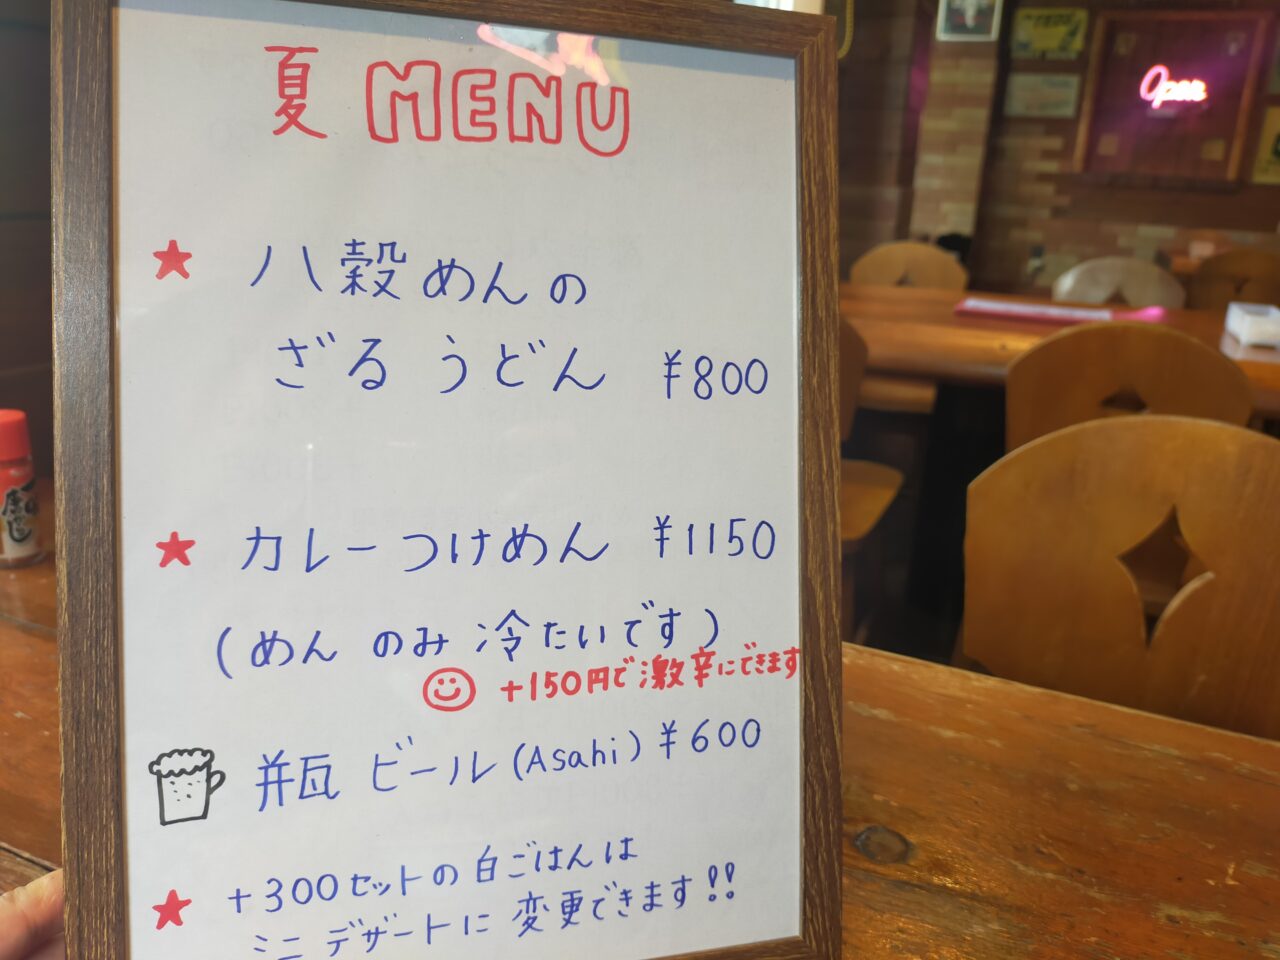 夏 MENU
Open
★ 八穀めんの
ざるうどん ¥800
★ カレーつけめん ¥1150
(めんのみ冷たいです)
+150円で激辛にできます
瓶ビール(Asahi) ¥600
★ +300セットの白ごはんは
ミニデザートに変更できます!!